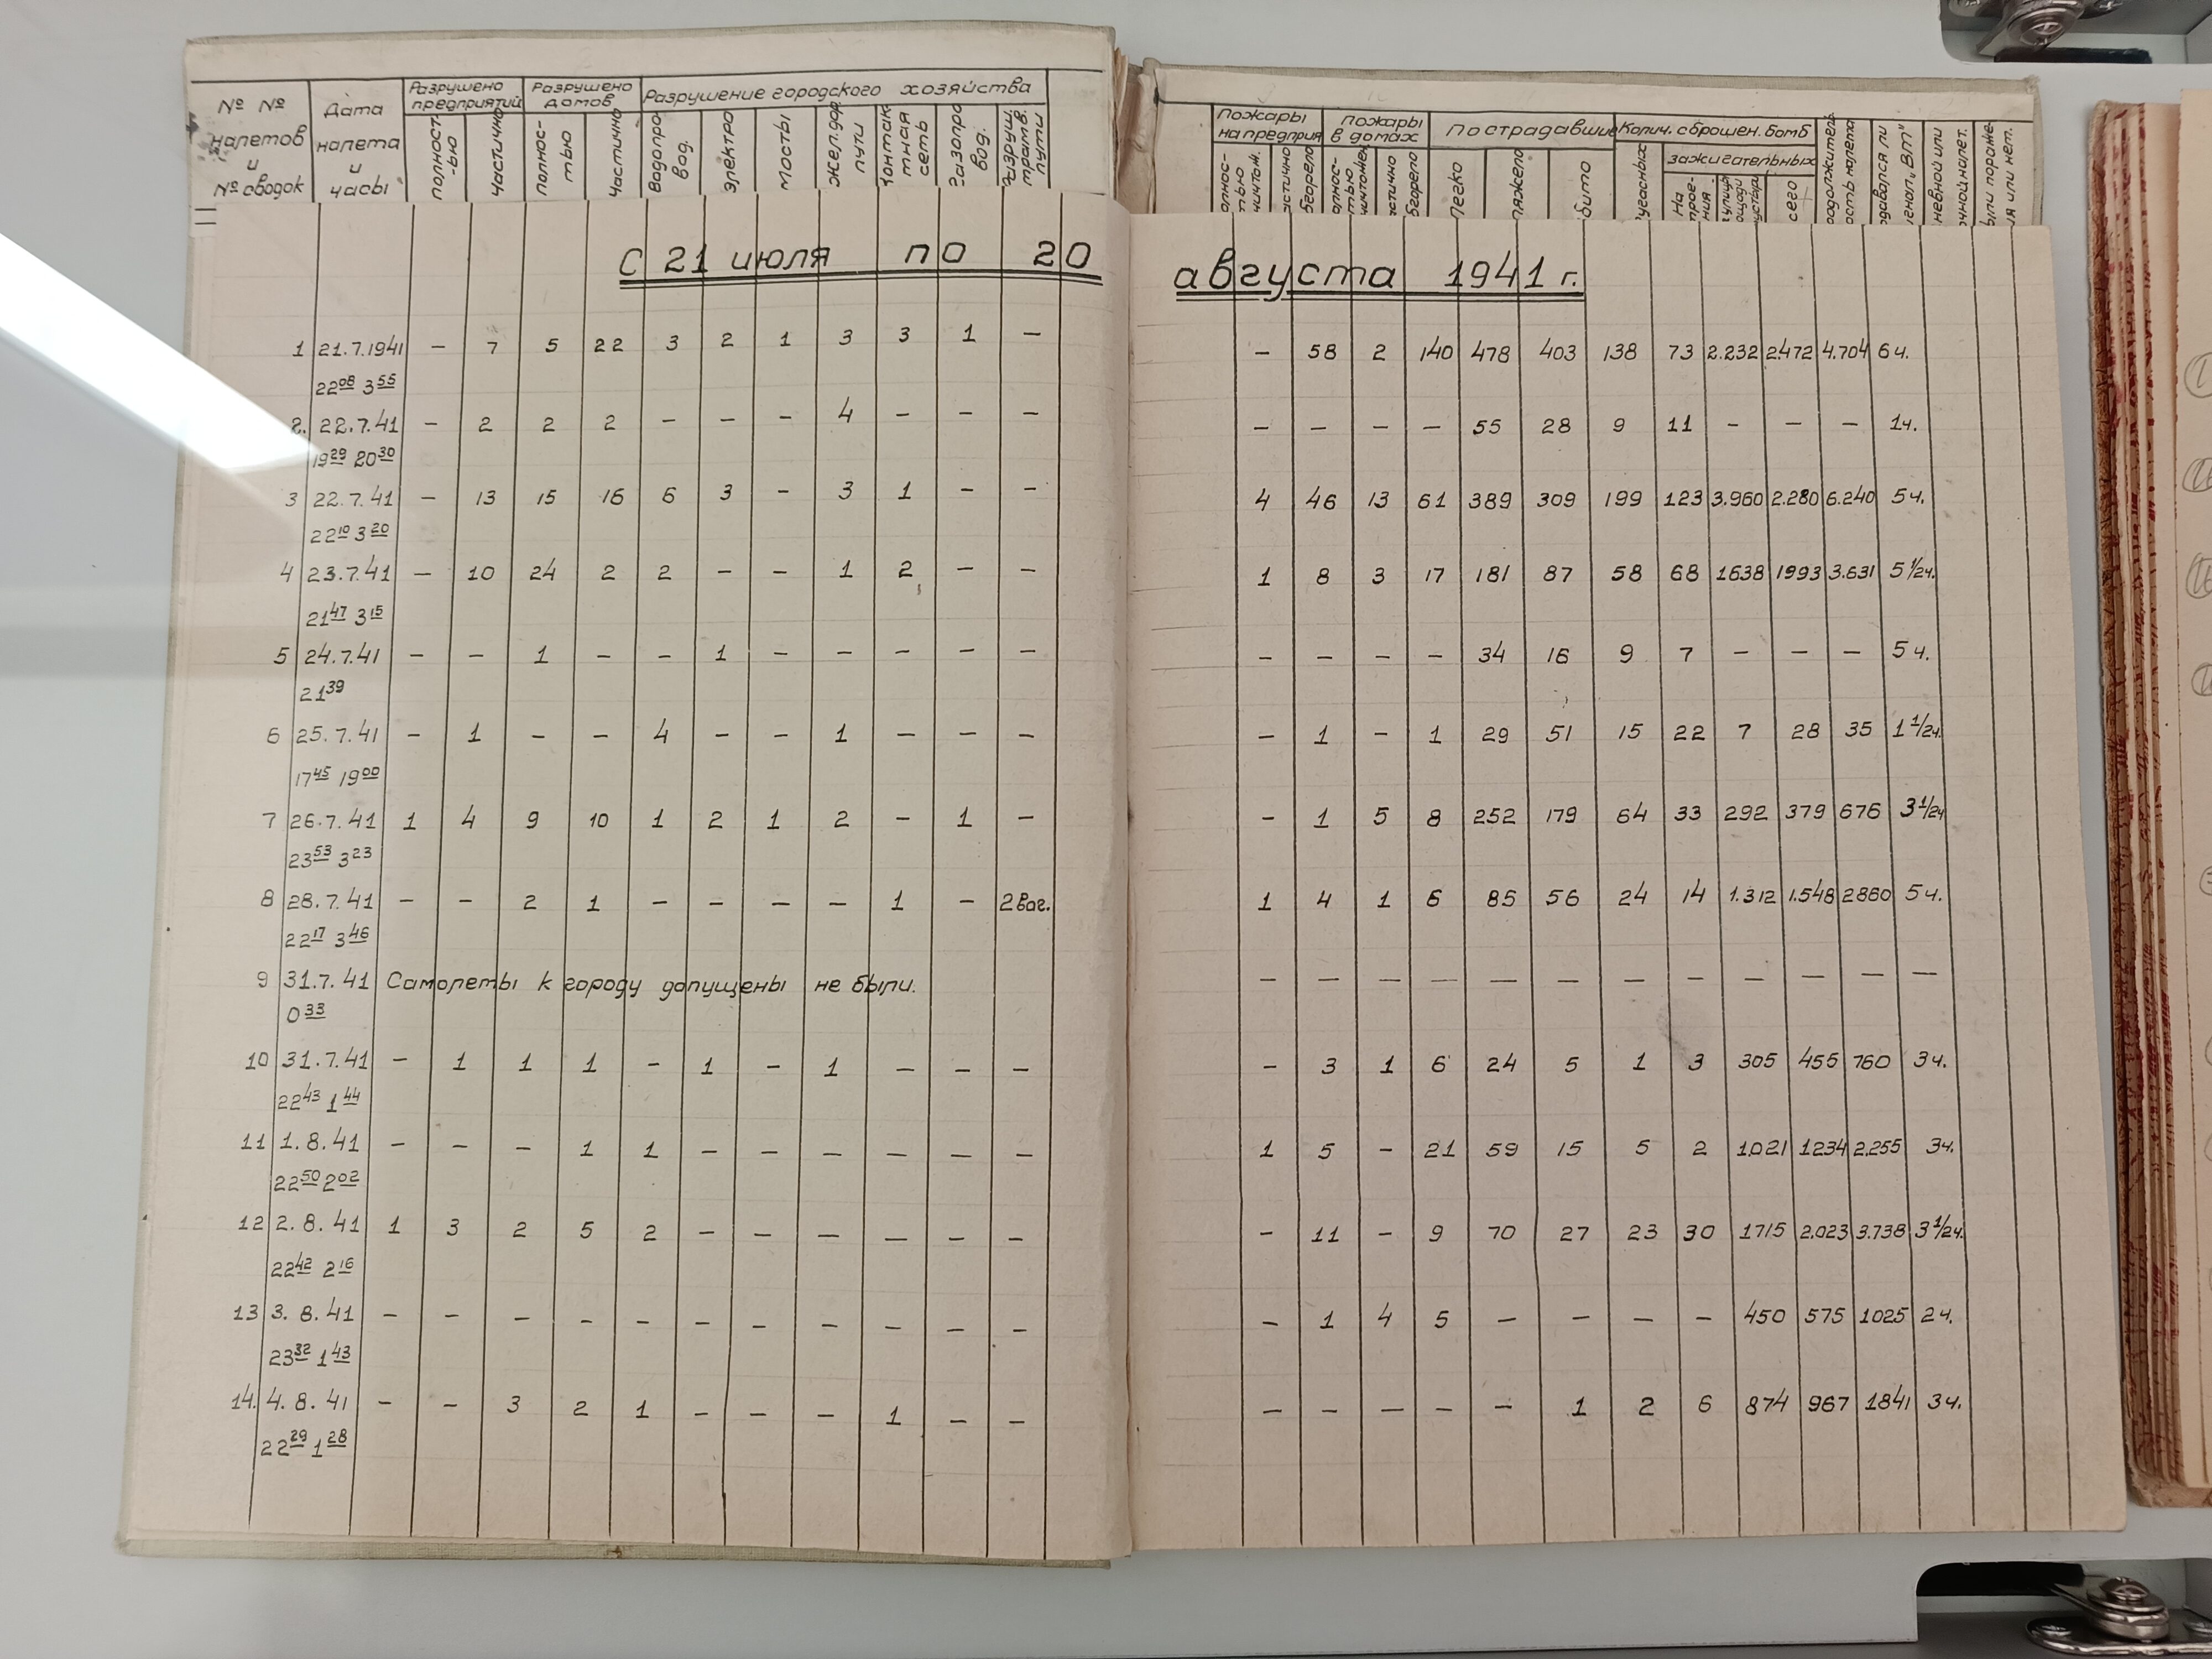 № № налетов и № сводок
Дата налета и часы
Разрушено предприятий
полност-ью
частично
Разрушено домов
полнос-тью
частично
Разрушение городского хозяйства
Водопро вод.
Электро
Мосты
Жел.дор. пути
Контак тная сеть
Газопро вод.
Разруш. трамв. пути
Пожары на предприя
Пожары в домах
Пострадавшие
Легко
Колич. сброшен. бомб
зажигательных
С 21 июля по 20 августа 1941 г.
1 21.7.1941 — 7 5 22 3 2 1 3 3 1 — — 58 2 140 478 403 138 73 2.232 2472 4.704 6ч.
22 08 3 55
2. 22.7.41 — 2 2 2 — — — 4 — — — — — — — 55 28 9 11 — — — 1ч.
19 29 20 30
3 22.7.41 — 13 15 16 6 3 — 3 1 — — 4 46 13 61 389 309 199 123 3.960 2.280 6.240 5ч.
22 10 3 20
4 23.7.41 — 10 24 2 2 — — 1 2 — — 1 8 3 17 181 87 58 68 1638 1993 3.631 5 1/2ч.
21 47 3 15
5 24.7.41 — — 1 — — 1 — — — — — — — — — 34 16 9 7 — — — 5ч.
21 39
6 25.7.41 — 1 — — 4 — — 1 — — — — 1 — 1 29 51 15 22 7 28 35 1 1/2ч.
17 45 19 00
7 26.7.41 1 4 9 10 1 2 1 2 — 1 — — 1 5 8 252 179 64 33 292 379 676 3 1/2ч
23 53 3 23
8 28.7.41 — — 2 1 — — — — 1 — 2 ваг. 1 4 1 6 85 56 24 14 1.312 1.548 2860 5ч.
22 17 3 46
9 31.7.41 Самолеты к городу допущены не были. — — — — — — — — — — — —
0 33
10 31.7.41 — 1 1 1 — 1 — 1 — — — — 3 1 6 24 5 1 3 305 455 760 3ч.
22 43 1 44
11 1.8.41 — — — 1 1 — — — — — — 1 5 — 21 59 15 5 2 1.021 1234 2.255 3ч.
22 50 2 02
12 2.8.41 1 3 2 5 2 — — — — — — — 11 — 9 70 27 23 30 1715 2.023 3.738 3 1/2ч.
22 42 2 16
13 3.8.41 — — — — — — — — — — — — 1 4 5 — — — — 450 575 1025 2ч.
23 32 1 43
14. 4.8.41 — — 3 2 1 — — — 1 — — — — — — — 1 2 6 874 967 1841 3ч.
22 29 1 28